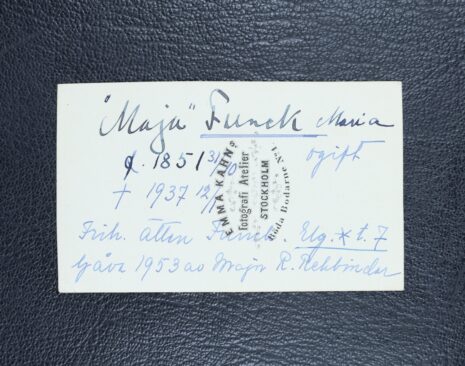 "Maja" Funck Maria
f. 1851 31/10 ogift
† 1937 12/11
Frih. ätten Funck. Elg. * t. 7
Gåva 1953 av Major R. Rehbinder
EMMA KAHNS
Fotografi Atelier
STOCKHOLM
Röda Bodarne No 1